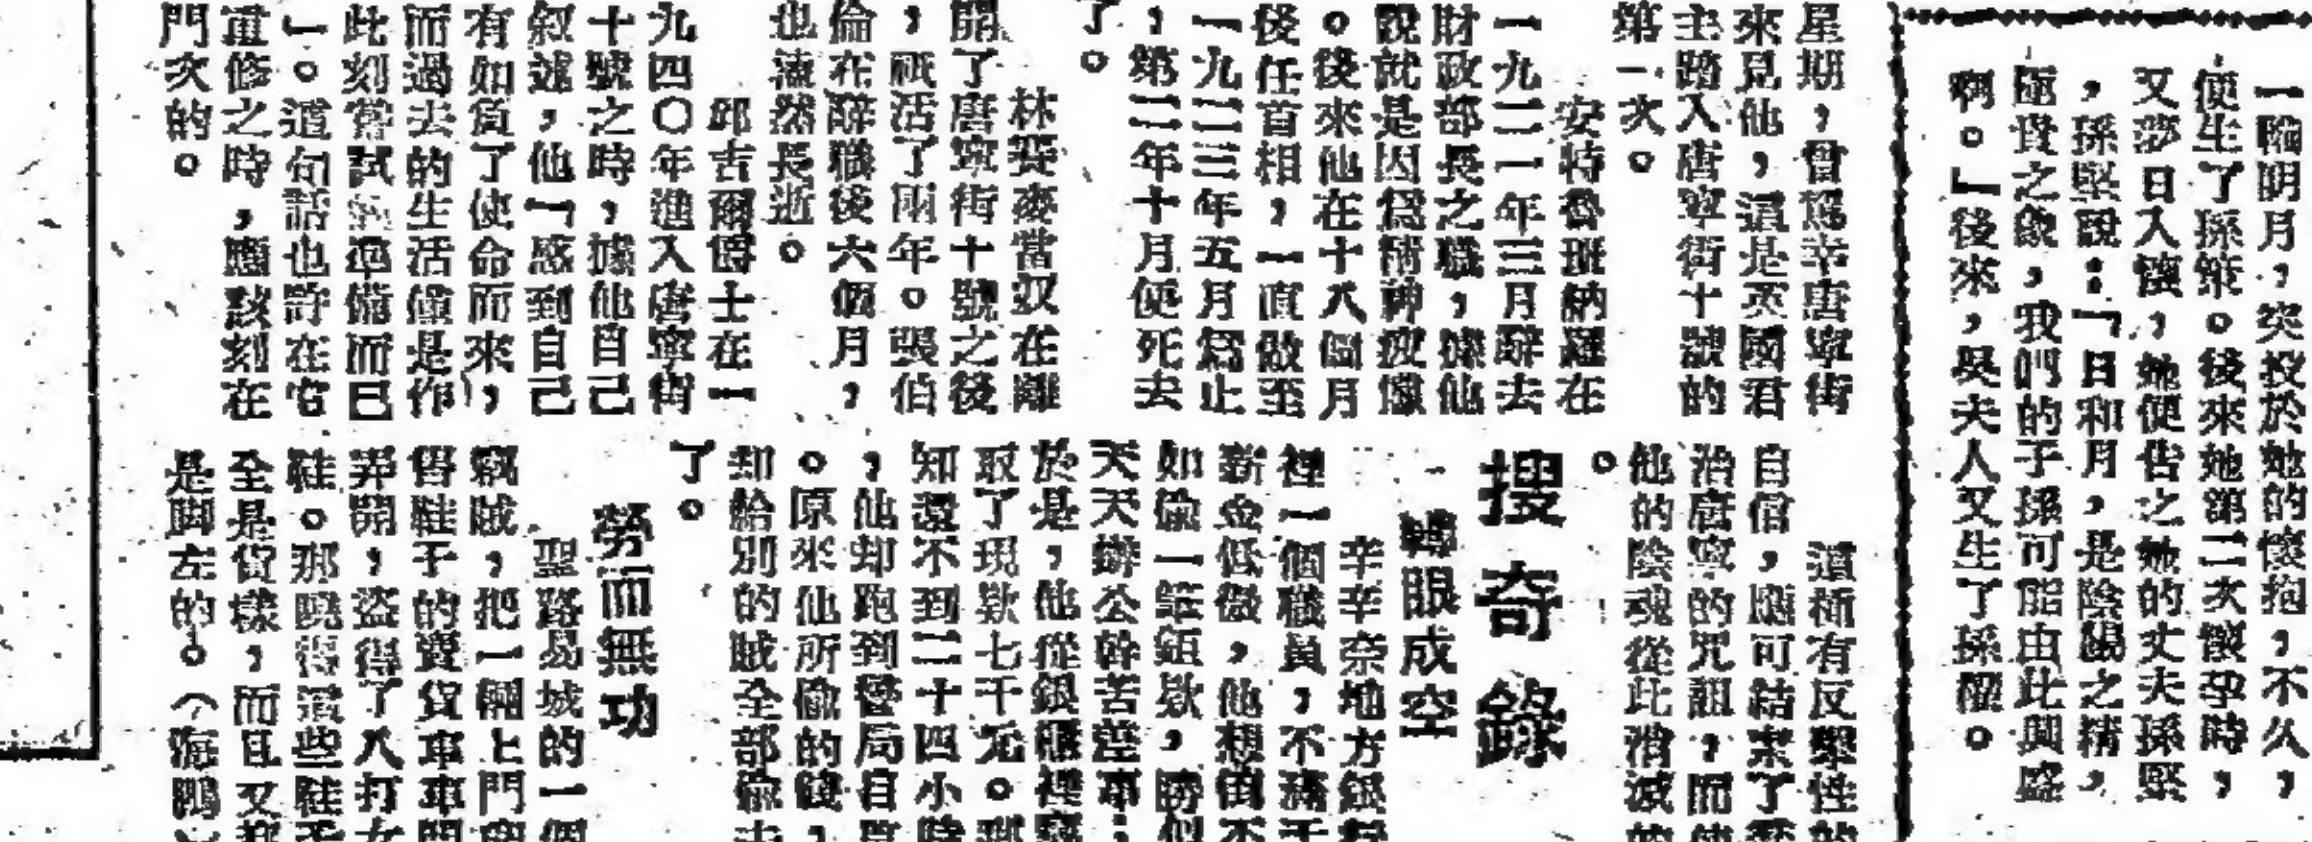 一輪明月，突投於她的懷抱，不久，
便生了孫策。後來她第二次懷孕時，
又夢日入懷，她便告之她的丈夫孫堅
，孫堅說：「日和月，是陰陽之精，
極貴之象，我們的子孫可能由此興盛
啊。」後來，吳夫人又生了孫權。
星期，曾駕幸唐寧街
來見他，這是英國君
主踏入唐寧街十號的
第一次。
安特魯班納羅在
一九二一年三月辭去
財政部長之職，據他
說就是因為精神疲憊
。後來他在十八個月
後任首相，一直做至
一九二三年五月為止
，第二年十月便死去
了。
林賽麥當奴在離
開了唐寧街十號之後
，祇活了兩年。張伯
倫在辭職後六個月，
也溘然長逝。
邱吉爾博士在一
九四〇年進入唐寧街
十號之時，據他自己
叙述，他「感到自己
有如負了使命而來，
而過去的生活僅是作
此刻嘗試的準備而已
」。這句話也許在官
重修之時，應該刻在
門次的。
這種有反擊性的
自信，應可結束了
治唐寧的咒詛，而使
他的陰魂從此消滅
。
搜奇錄
轉眼成空
辛辛奈地方銀行
裡一個職員，不滿于
薪金低微，他想倒不
如偷一筆鉅欵，勝似
天天辦公幹苦差事；
於是，他從銀櫃裡竊
取了現欵七千元。那
知還不到二十四小時
，他却跑到警局自首
。原來他所偷的錢，
却給別的賊全部偷去
了。
勞而無功
聖路易城的一個
竊賊，把一輛上門
售鞋子的賣貨車車門
弄開，盜得了八打女
鞋。那曉得這些鞋子
全是貨樣，而且又都
是脚左的。（海鷗